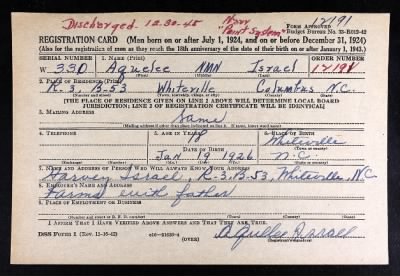 Discharged - 12-30-45 Navy 12191
"Point System"
Form Approved
Budget Bureau No. 33-R012-42
REGISTRATION CARD—(Men born on or after July 1, 1924, and on or before December 31, 1924)
(Also for the registration of men as they reach the 18th anniversary of the date of their birth on or after January 1, 1943.)
SERIAL NUMBER 1. NAME (Print) ORDER NUMBER
W 330 Aquelee NMN Israel 12191
(First) (Middle) (Last)
2. PLACE OF RESIDENCE (Print)
R. 3, B-53 Whiteville Columbus N.C.
(Number and street) (Town, township, village, or city) (County) (State)
[THE PLACE OF RESIDENCE GIVEN ON LINE 2 ABOVE WILL DETERMINE LOCAL BOARD
JURISDICTION; LINE 2 OF REGISTRATION CERTIFICATE WILL BE IDENTICAL]
3. MAILING ADDRESS
Same
[Mailing address if other than place indicated on line 2. If same, insert word same]
4. TELEPHONE 5. AGE IN YEARS 6. PLACE OF BIRTH
18 Whiteville
DATE OF BIRTH (Town or county)
Jan 19 1926 N.C.
(Exchange) (Number) (Mo.) (Day) (Yr.) (State or country)
7. NAME AND ADDRESS OF PERSON WHO WILL ALWAYS KNOW YOUR ADDRESS
Harvey Israel, R-3, B-53, Whiteville, N.C
8. EMPLOYER'S NAME AND ADDRESS
Farms with father
9. PLACE OF EMPLOYMENT OR BUSINESS
(Number and street or R. F. D. number) (Town) (County) (State)
I AFFIRM THAT I HAVE VERIFIED ABOVE ANSWERS AND THAT THEY ARE TRUE.
DSS Form 1 (Rev. 11-16-42) (OVER)
Aquellee Israel
(Registrant's signature)